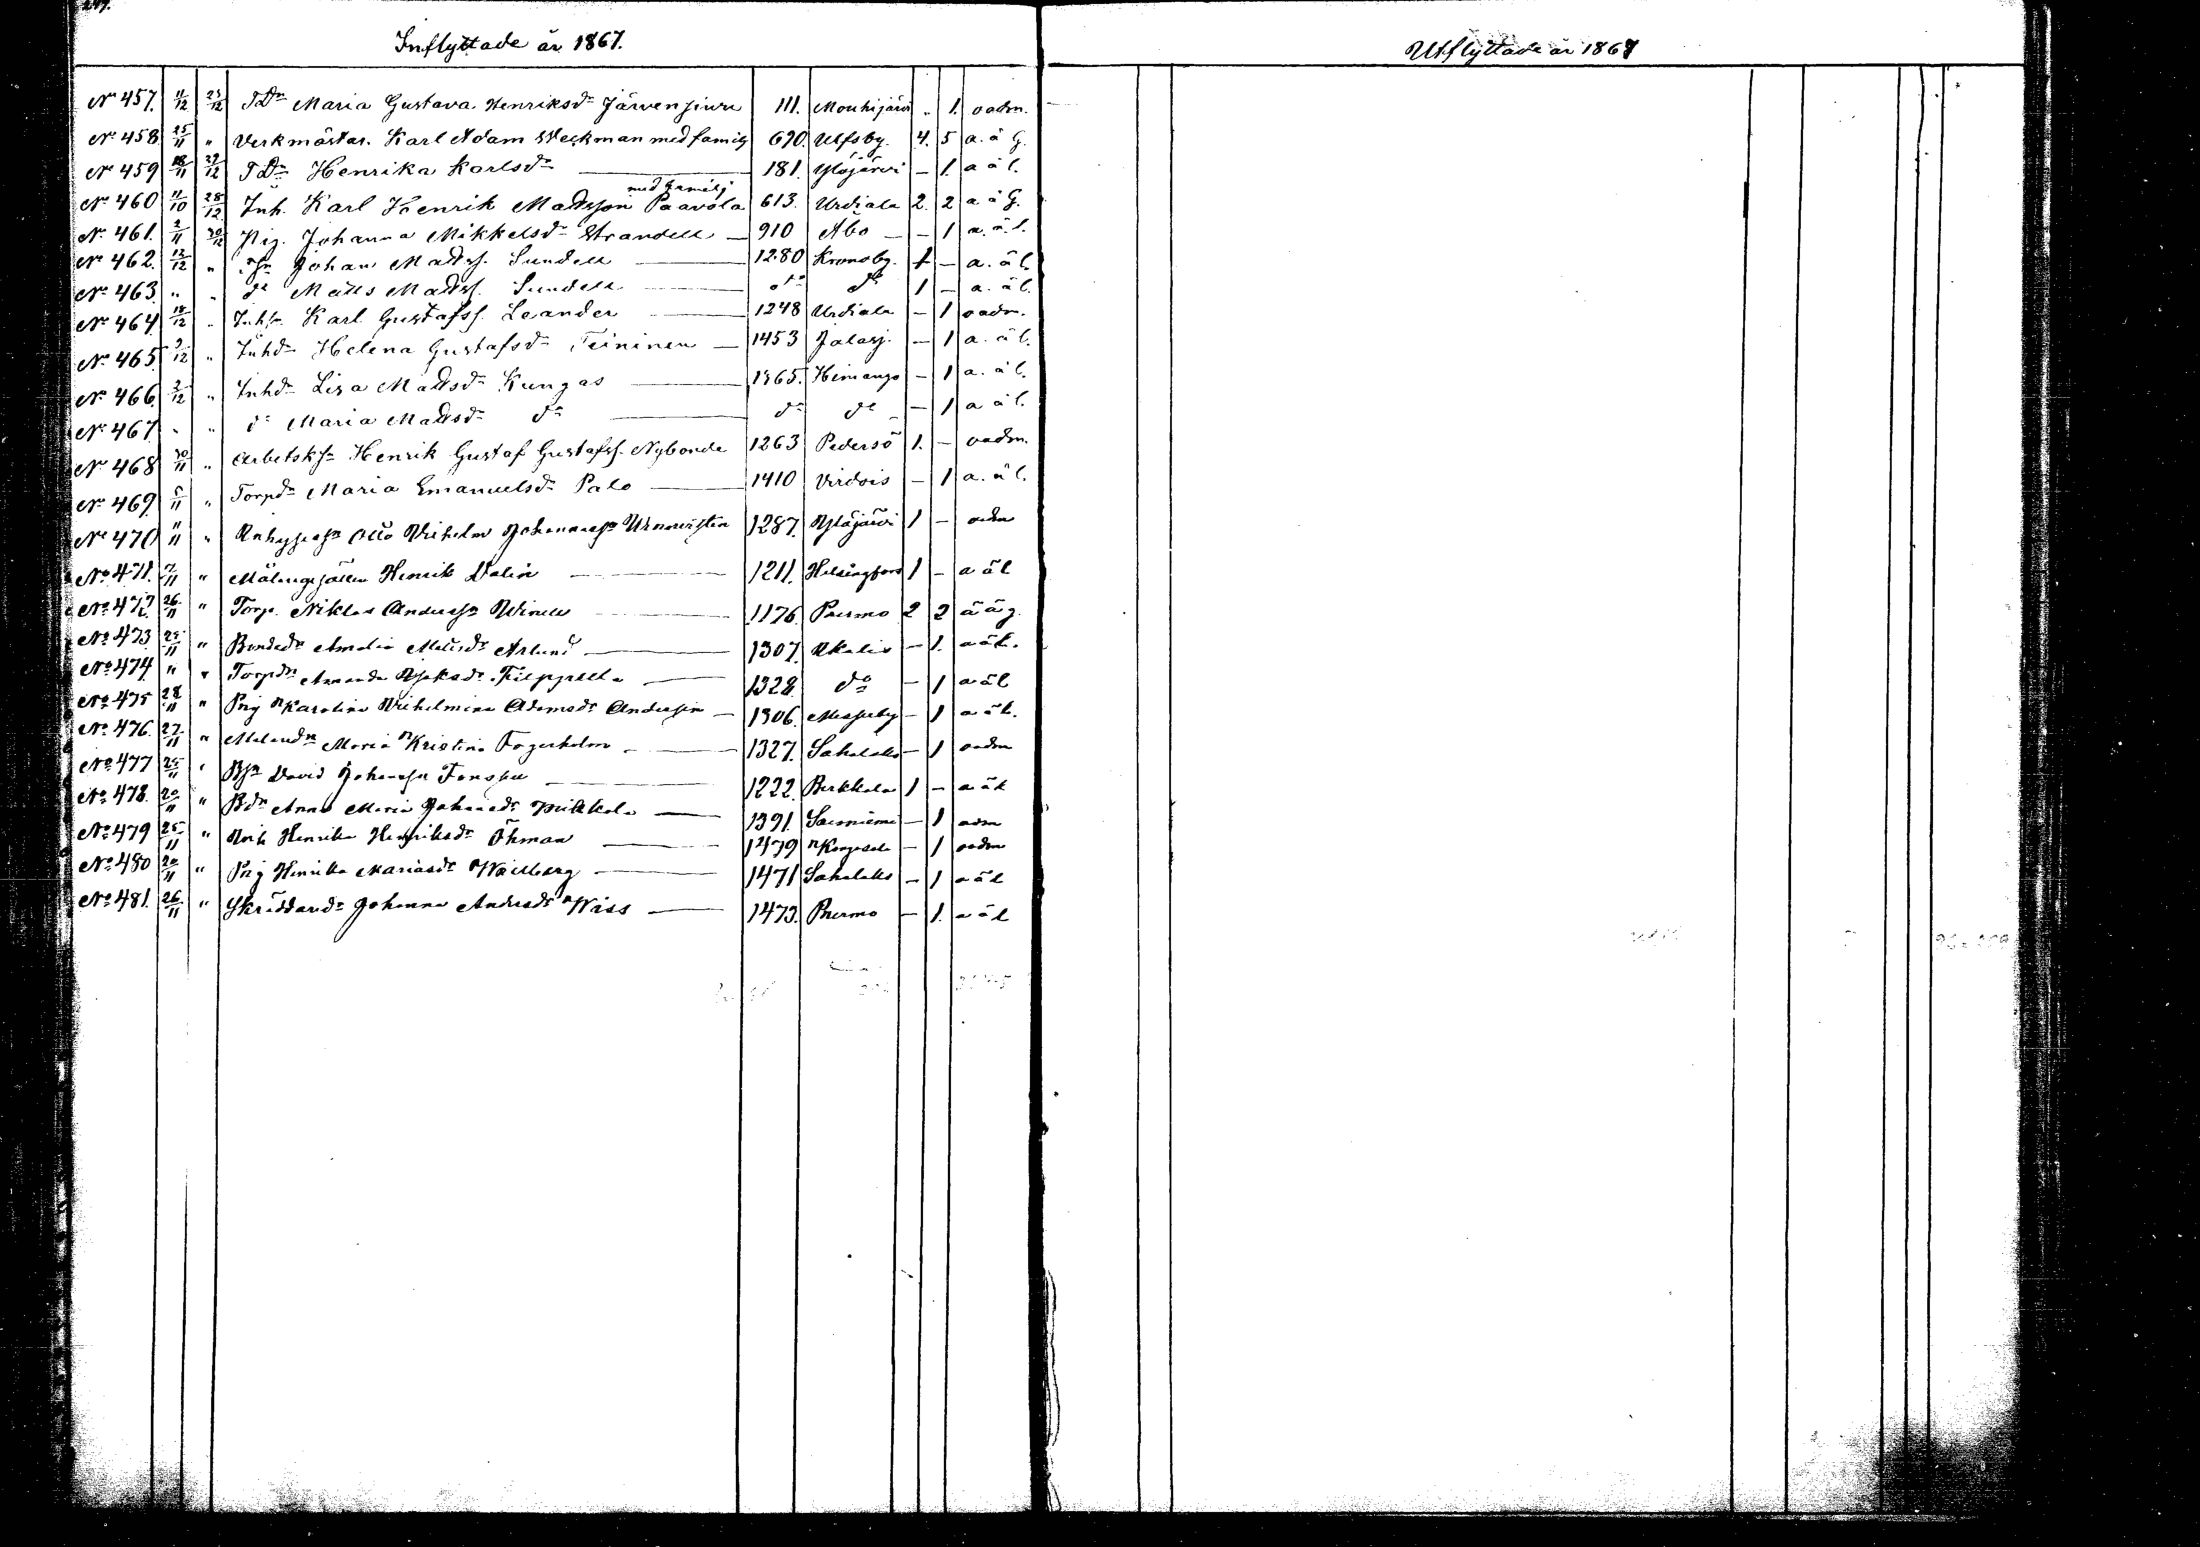 Inflyttade år 1867.
No 457. 11/12 23/12 TDr Maria Gustava Henriksdr 111. Mouhijärvi " 1. oadm.
No 458 25/11 " Verkmästar. Karl Adam Weckman med familj 690. Ulfsby. 4. 5 a. ä g.
No 459 18/11 27/12 TDr Henrika Karlsdr 181. Ylöjärvi - 1. a ä l.
No 460 11/10 28/12 Inh. Karl Henrik Mattsson Paavola med familj 613. Urdiala 2. 2 a ä g.
No 461. 2/11 30/12 Pig. Johanna Mikkelsdr Strandell 910 Åbo - 1 a. ä. l.
No 462. 12/12 " Johan Mattss. Sundell 1280 Kronoby. 1 - a. ä l.
No 463. " " do Matts Mattss. Sundell do do 1 - a. ä l.
No 464. 12/12 " Karl Gustafss. Leander 1248 Urdiala - 1 oadm.
No 465. 9/12 " Inhdr Helena Gustafsdr Teininen 1453 Jalasj. - 1 a. ä l.
No 466. 2/12 " Inhdr Lisa Mattsdr Kungas 1365. Himango - 1 a. ä l.
No 467. " " do Maria Mattsdr do do do - 1 a ä l.
No 468 30/11 " Henrik Gustaf Gustafss. Nybonde 1263 Pedersö 1. - oadm.
No 469. 5/11 " Torpdr Maria Emanuelsdr Palo 1410 Virdois - 1 a. ä l.
No 470 11/11 " Otto Vilhelm 1287. Ylöjärvi 1 - oadm
No 471. 7/11 " Målaregesällen Henrik Dalin 1211. Helsingfors 1 - a ä l
No 472 26/11 " Torp. Niklas Anderss. 1176. Purmo 2 2 a ä g.
No 473. 25/11 " Bondedr Amalia Mattsdr 1307. Ikalis - 1. a ä l.
No 474 " " Torpdr Amanda 1328. do - 1 a ä l
No 475 28/11 " Pig Karolina Vilhelmina Adamsdr Andersin 1306. Messuby - 1 a ä l.
No 476. 27/11 " Maria Kristina Fagerholm 1327. Sahalaks - 1 oadm
No 477 25/11 " David 1222. Birkkala 1 - a ä l
No 478. 20/11 " Bdr Anna Maria 1391. - 1 adm
No 479 25/11 " Henrika Henriksdr Öhman 1479 Kangasala - 1 oadm
No 480 20/11 " Pig Henrika Mariasdr 1471 Sahalaks - 1 a ä l
No 481. 26/11 " Skräddaredr Johanna Andersdr Wiss 1473. Purmo - 1. a ä l
Utflyttade år 1867